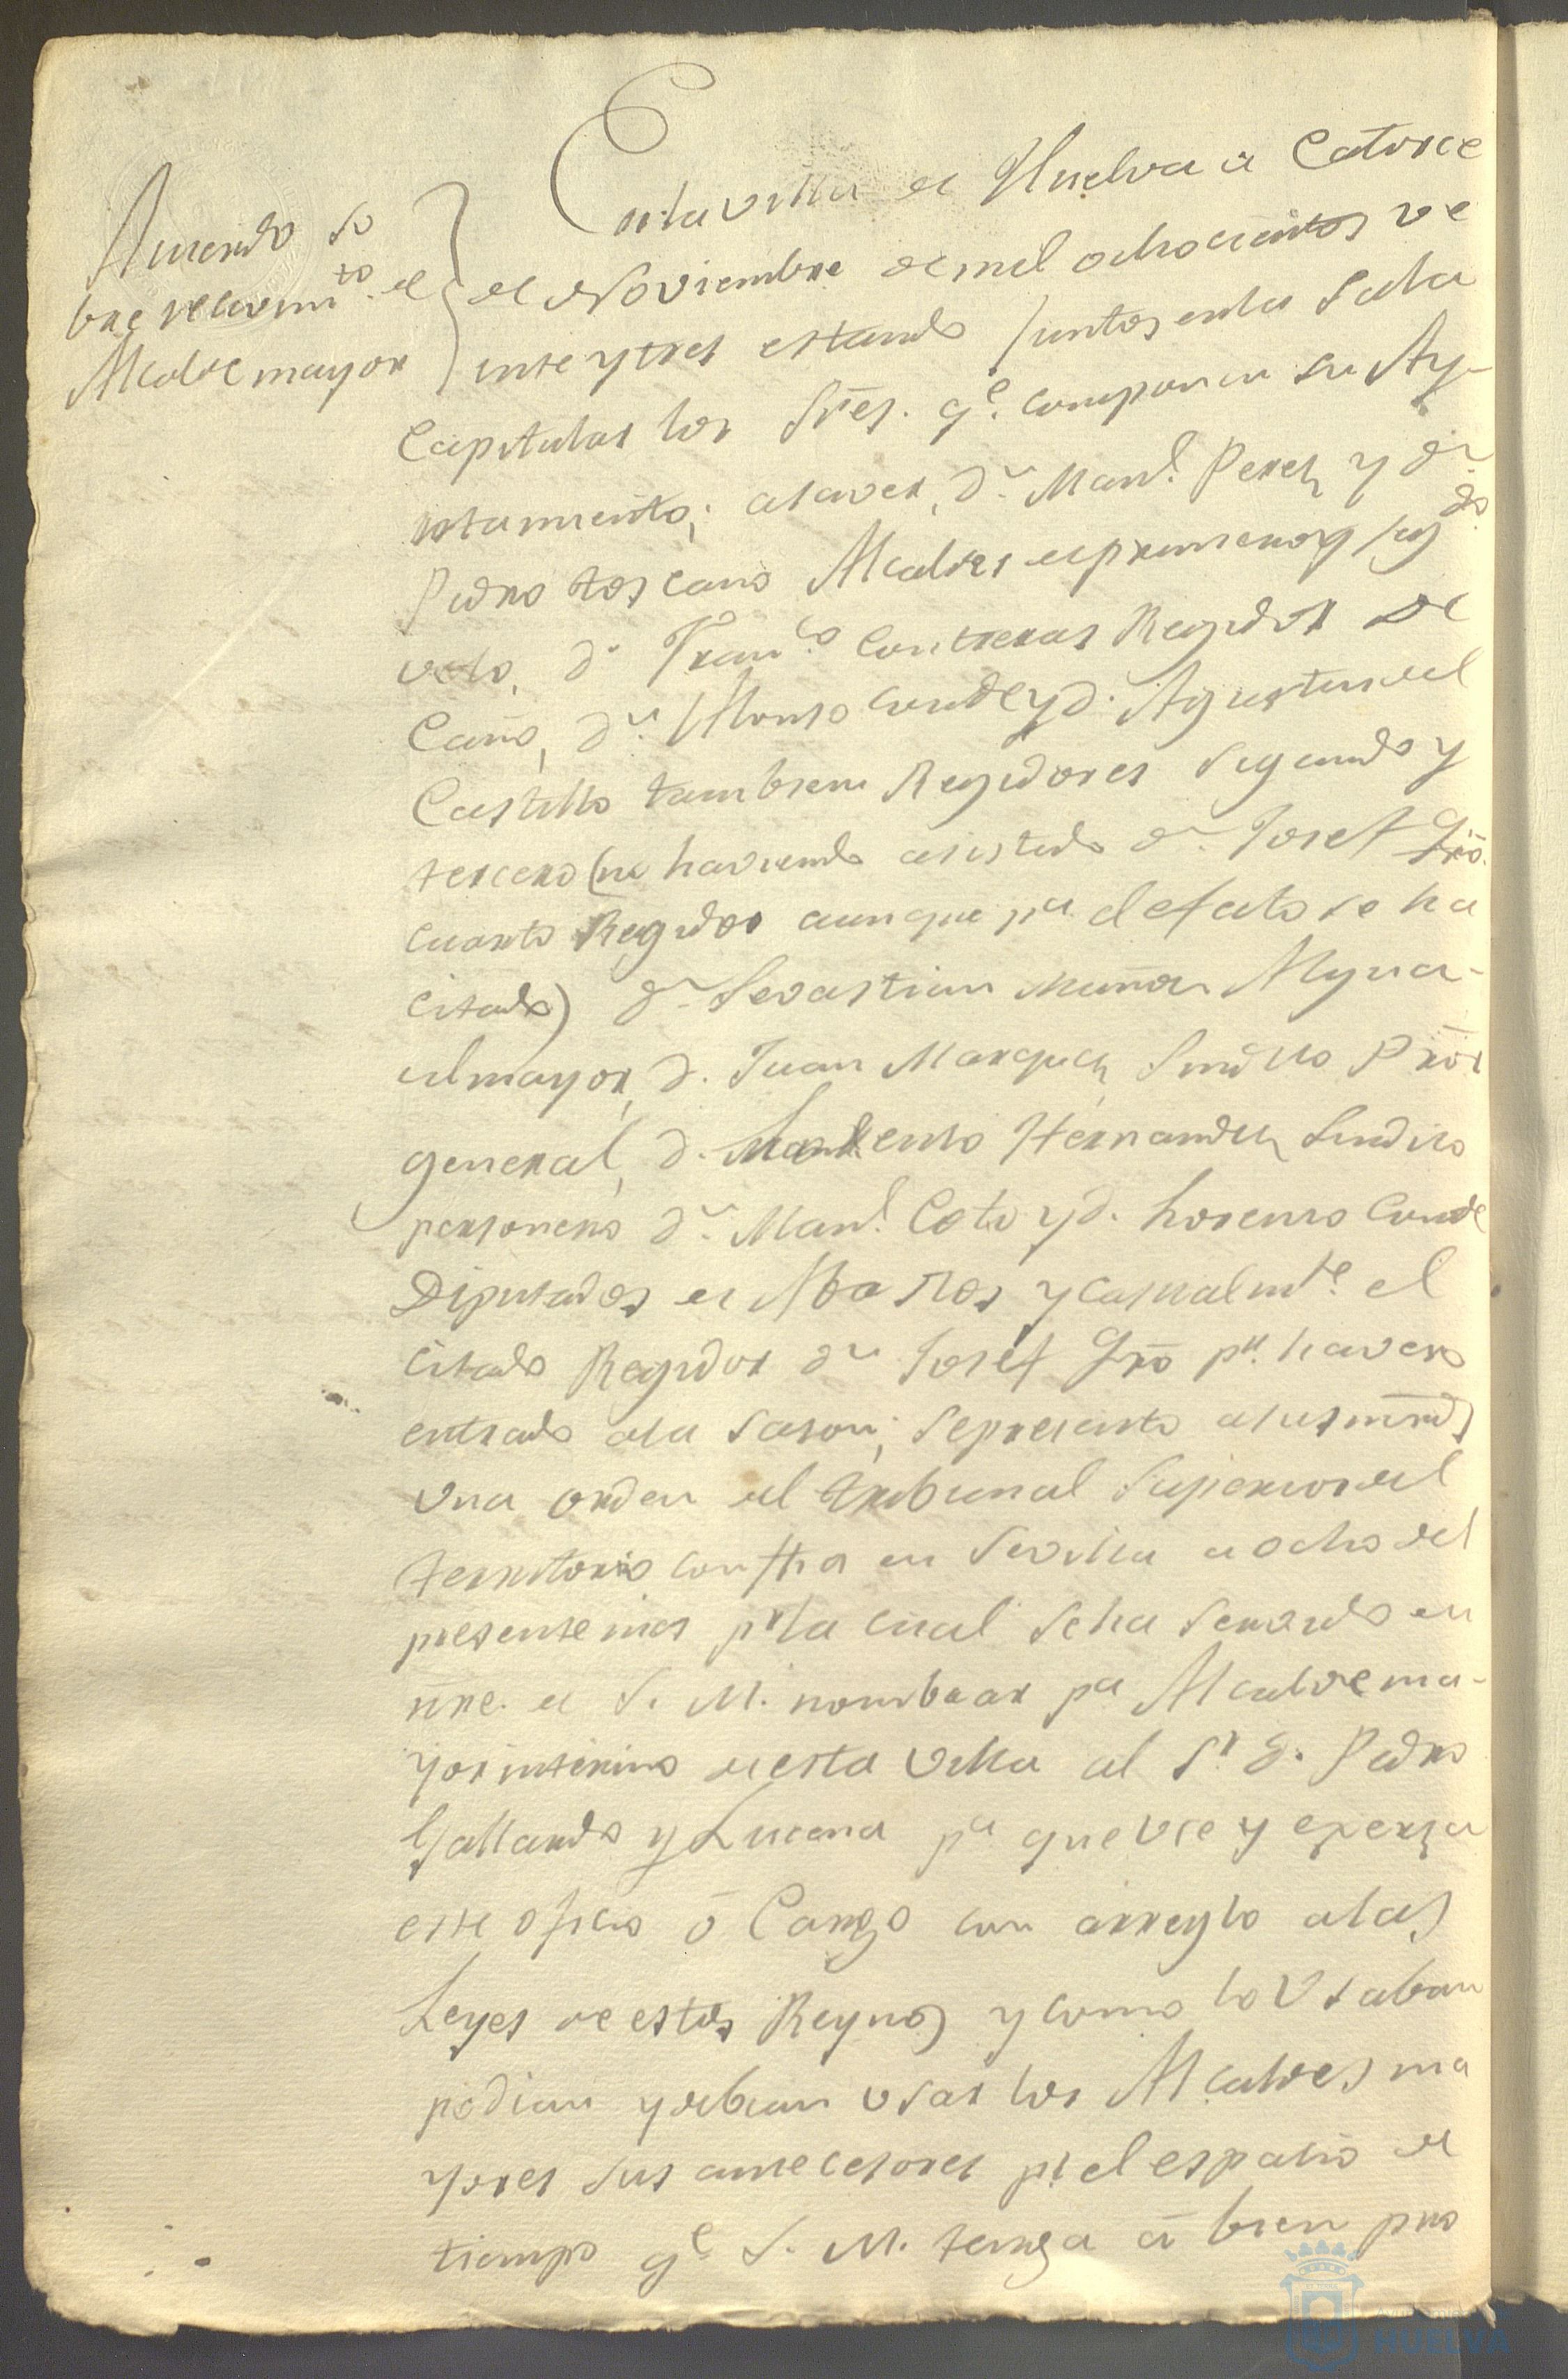 Acuerdo so
bre recevim.to de
Alcalde mayor
En la villa de Huelva a Catorce
de Noviembre de mil ochocientos ve
inte y tres estando juntos en la Sala
Capitular los Sres. q.e componen su Ay-
untamiento; a saver, D.n Man.l Perez y D.n
Pedro Toscano Alcaldes de primero y seg.do
voto, D.n Fran.co Contreras Regidor De
Cano, D.n Alonso Conde y D. Agustin del
Castillo tambien Regidores Segundo y
tercero (no haviendo asistido D.n Josef
cuarto Regidor aunque p.a el efecto se ha
citado) D.n Sevastian Algua-
cil mayor, D. Juan Marquez Sindico Pror
general, D. Hernandez Sindico
personero D.n Man.l Coto y D. Lorenzo Conde
Diputados de Abastos y casualm.te el
citado Regidor D.n Josef p.r haver
entrado a la sason; se presento a sus mrds
una orden del tribunal Superior del
territorio con fha en Sevilla a ocho del
presente mes p.r la cual se ha servido en
nre. de S. M. nombrar p.a Alcalde ma-
yor interino de esta Villa al S.r D. Pedro
Gallardo y Lucena p.a que use y exerza
este oficio ó Cargo con arreglo a las
Leyes de estos Reynos y como lo Usaban
podian y debian usar los Alcaldes ma
yores sus antecesores p.r el espacio de
tiempo q.e S. M. tenga á bien pro
HUELVA